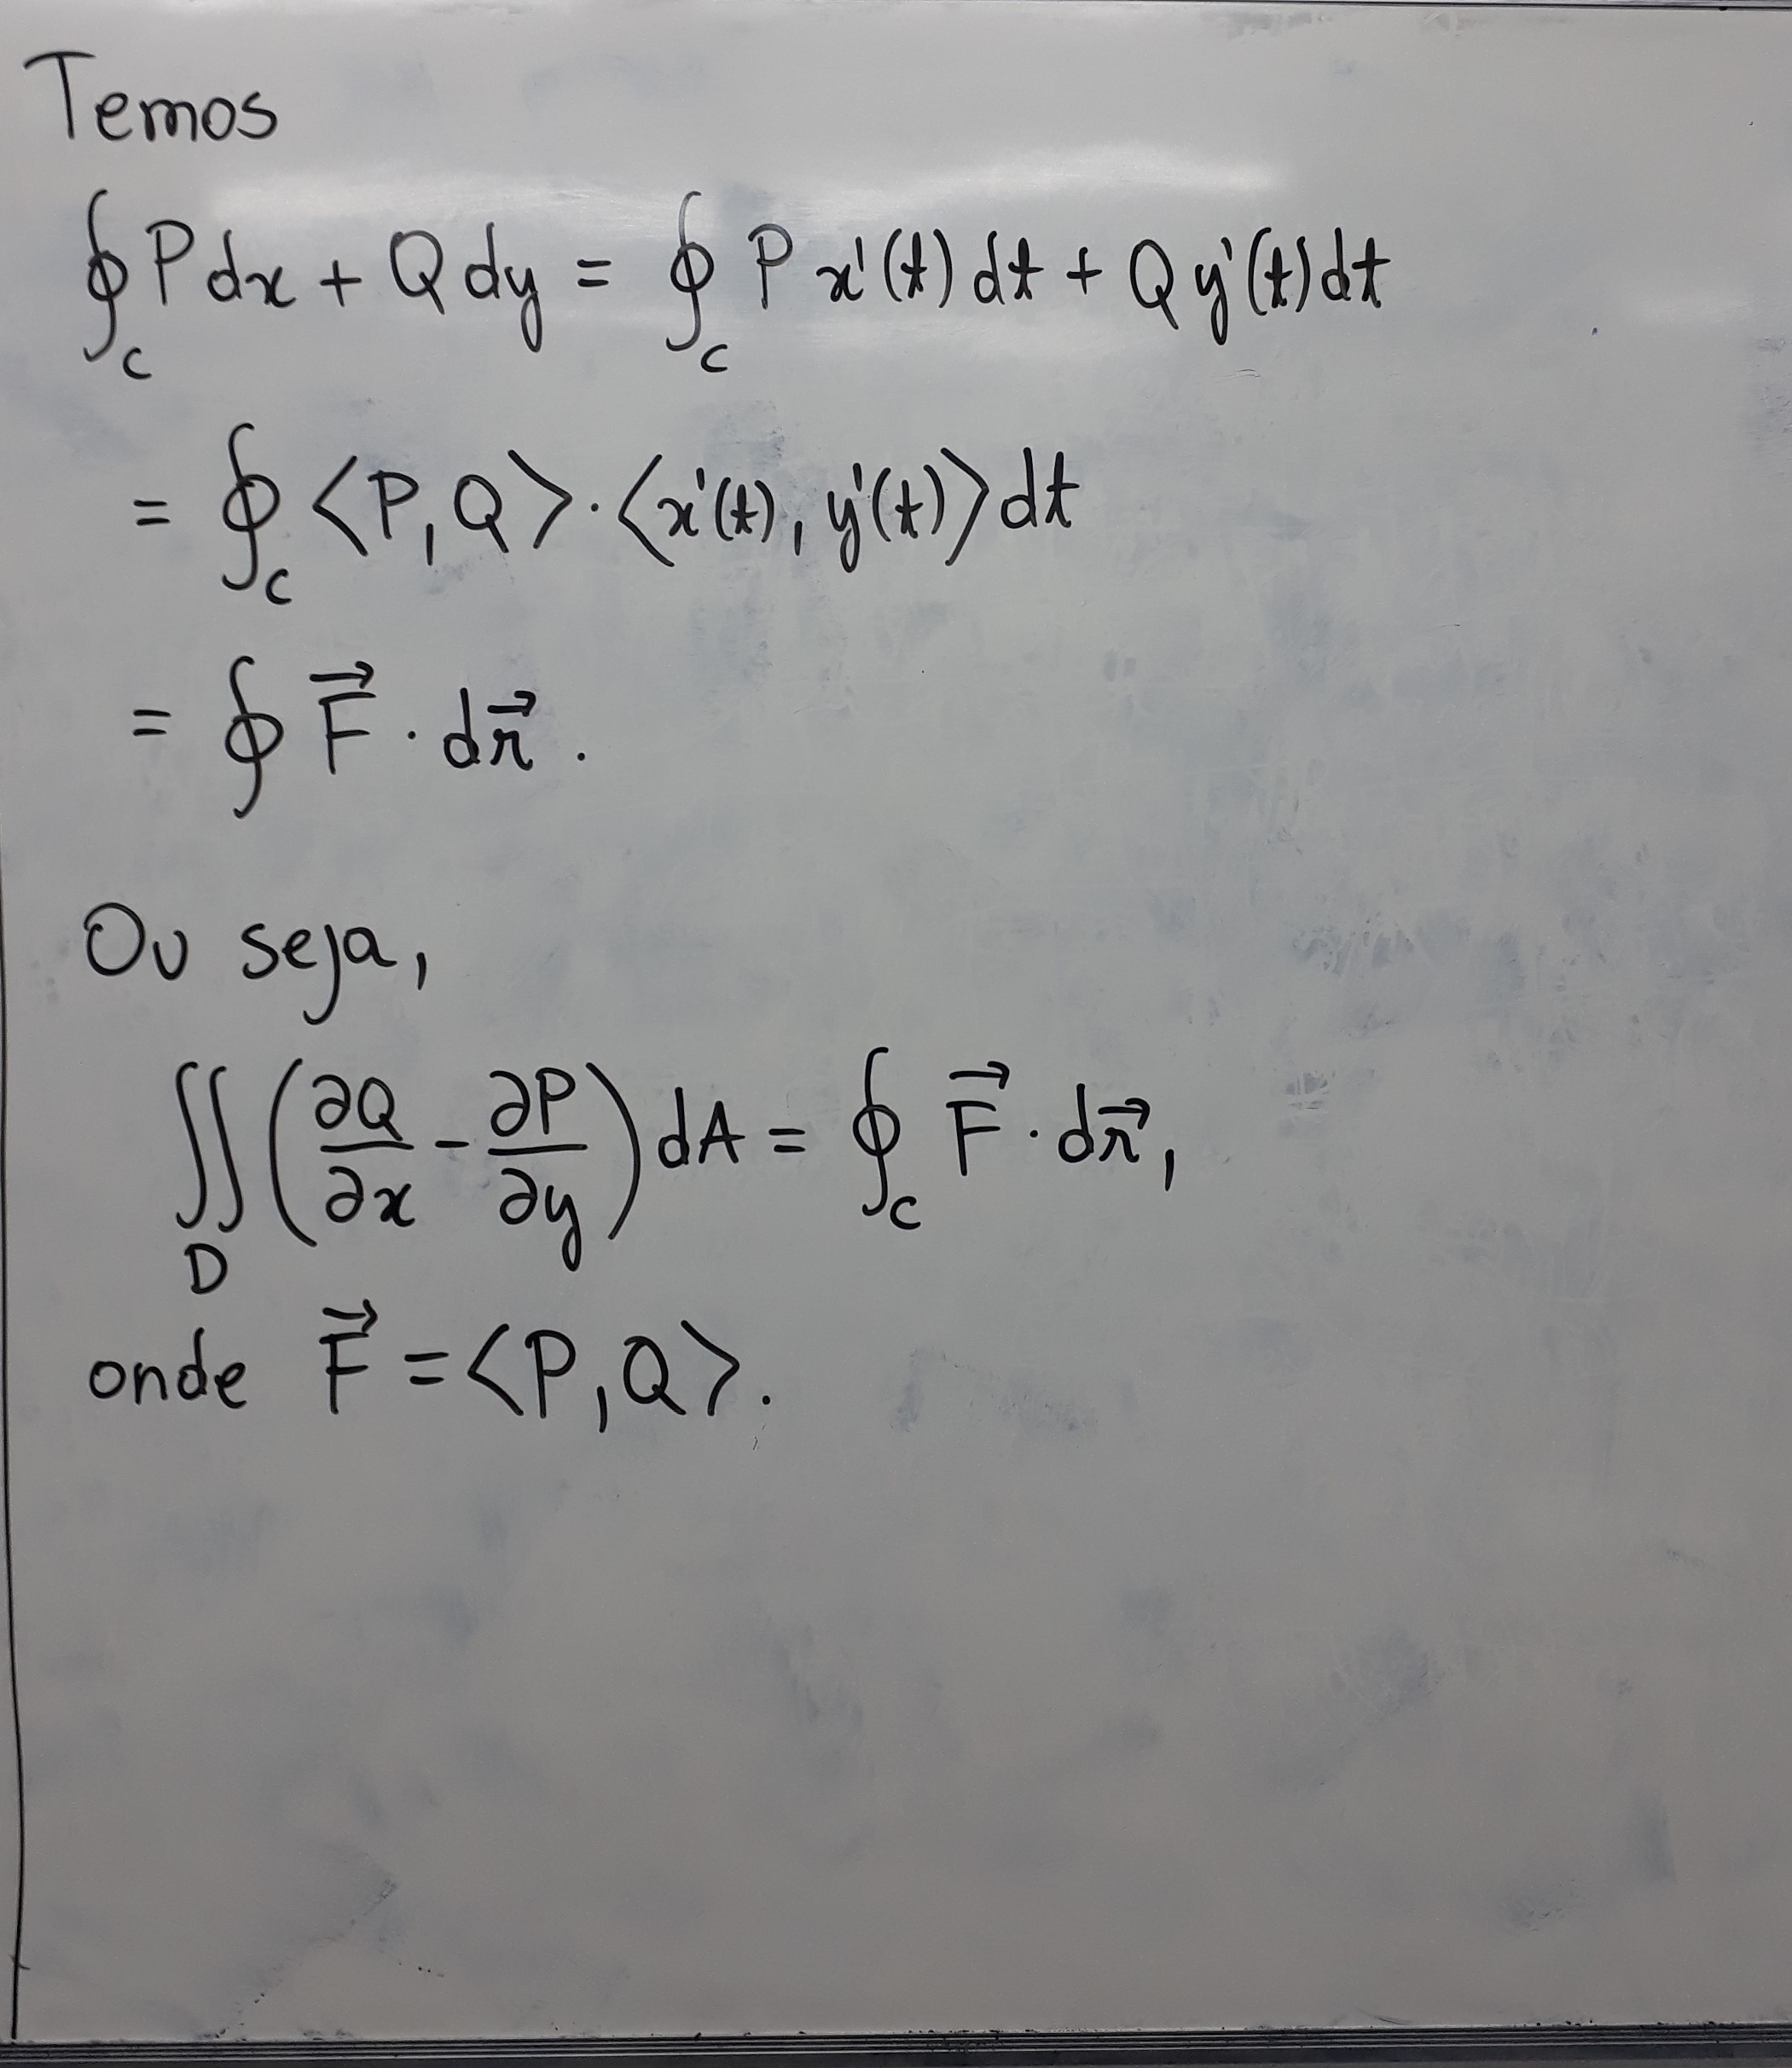 Temos
∮_C P dx + Q dy = ∮_C P x'(t) dt + Q y'(t) dt
= ∮_C ⟨P, Q⟩ · ⟨x'(t), y'(t)⟩ dt
= ∮ F⃗ · dr⃗ .
Ou seja,
∬_D (∂Q/∂x - ∂P/∂y) dA = ∮_C F⃗ · dr⃗ ,
onde F⃗ = ⟨P, Q⟩.